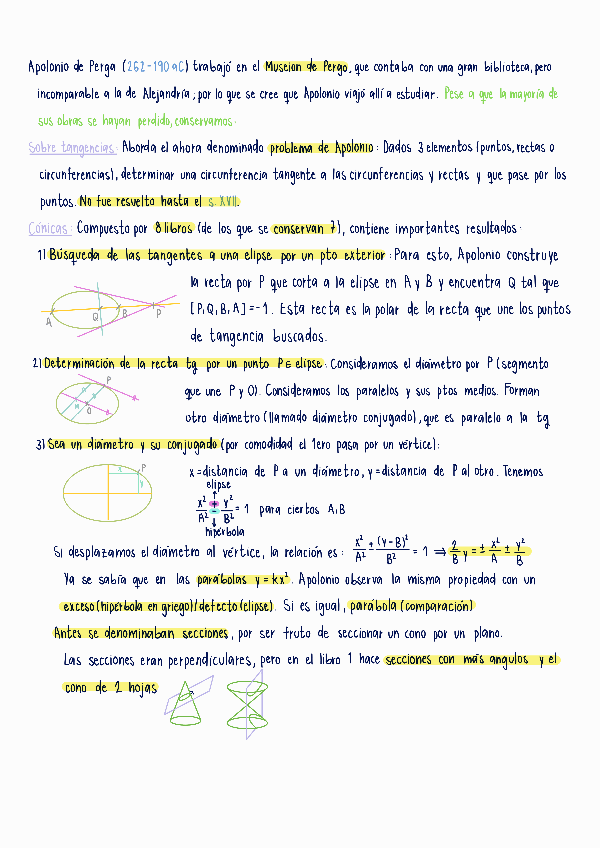 Apolonio de Perga (262-190 aC) trabajó en el Museion de Pergo, que contaba con una gran biblioteca, pero
incomparable a la de Alejandría; por lo que se cree que Apolonio viajó allí a estudiar. Pese a que la mayoría de
sus obras se hayan perdido, conservamos:
Sobre tangencias: Aborda el ahora denominado problema de Apolonio: Dados 3 elementos (puntos, rectas o
circunferencias), determinar una circunferencia tangente a las circunferencias y rectas y que pase por los
puntos. No fue resuelto hasta el s. XVII.
Cónicas: Compuesto por 8 libros (de los que se conservan 7), contiene importantes resultados:
1) Búsqueda de las tangentes a una elipse por un pto exterior: Para esto, Apolonio construye
la recta por P que corta a la elipse en A y B y encuentra Q tal que
[P,Q,B,A]=-1. Esta recta es la polar de la recta que une los puntos
de tangencia buscados.
A Q B P
2) Determinación de la recta tg por un punto P ∈ elipse: Consideramos el diámetro por P (segmento
que une P y O). Consideramos los paralelos y sus ptos medios. Forman
otro diámetro (llamado diámetro conjugado), que es paralelo a la tg
P
3) Sea un diámetro y su conjugado (por comodidad el 1ero pasa por un vértice):
x P y
x=distancia de P a un diámetro, y=distancia de P al otro. Tenemos
elipse
x²/A² ± y²/B² = 1 para ciertos A,B
hipérbola
Si desplazamos el diámetro al vértice, la relación es: x²/A² + (y-B)²/B² = 1 ⇒ 2/B y = ± x²/A ± y²/B
Ya se sabía que en las parábolas y=kx². Apolonio observa la misma propiedad con un
exceso (hipérbola en griego)/defecto (elipse). Si es igual, parábola (comparación)
Antes se denominaban secciones, por ser fruto de seccionar un cono por un plano.
Las secciones eran perpendiculares, pero en el libro 1 hace secciones con más ángulos y el
cono de 2 hojas